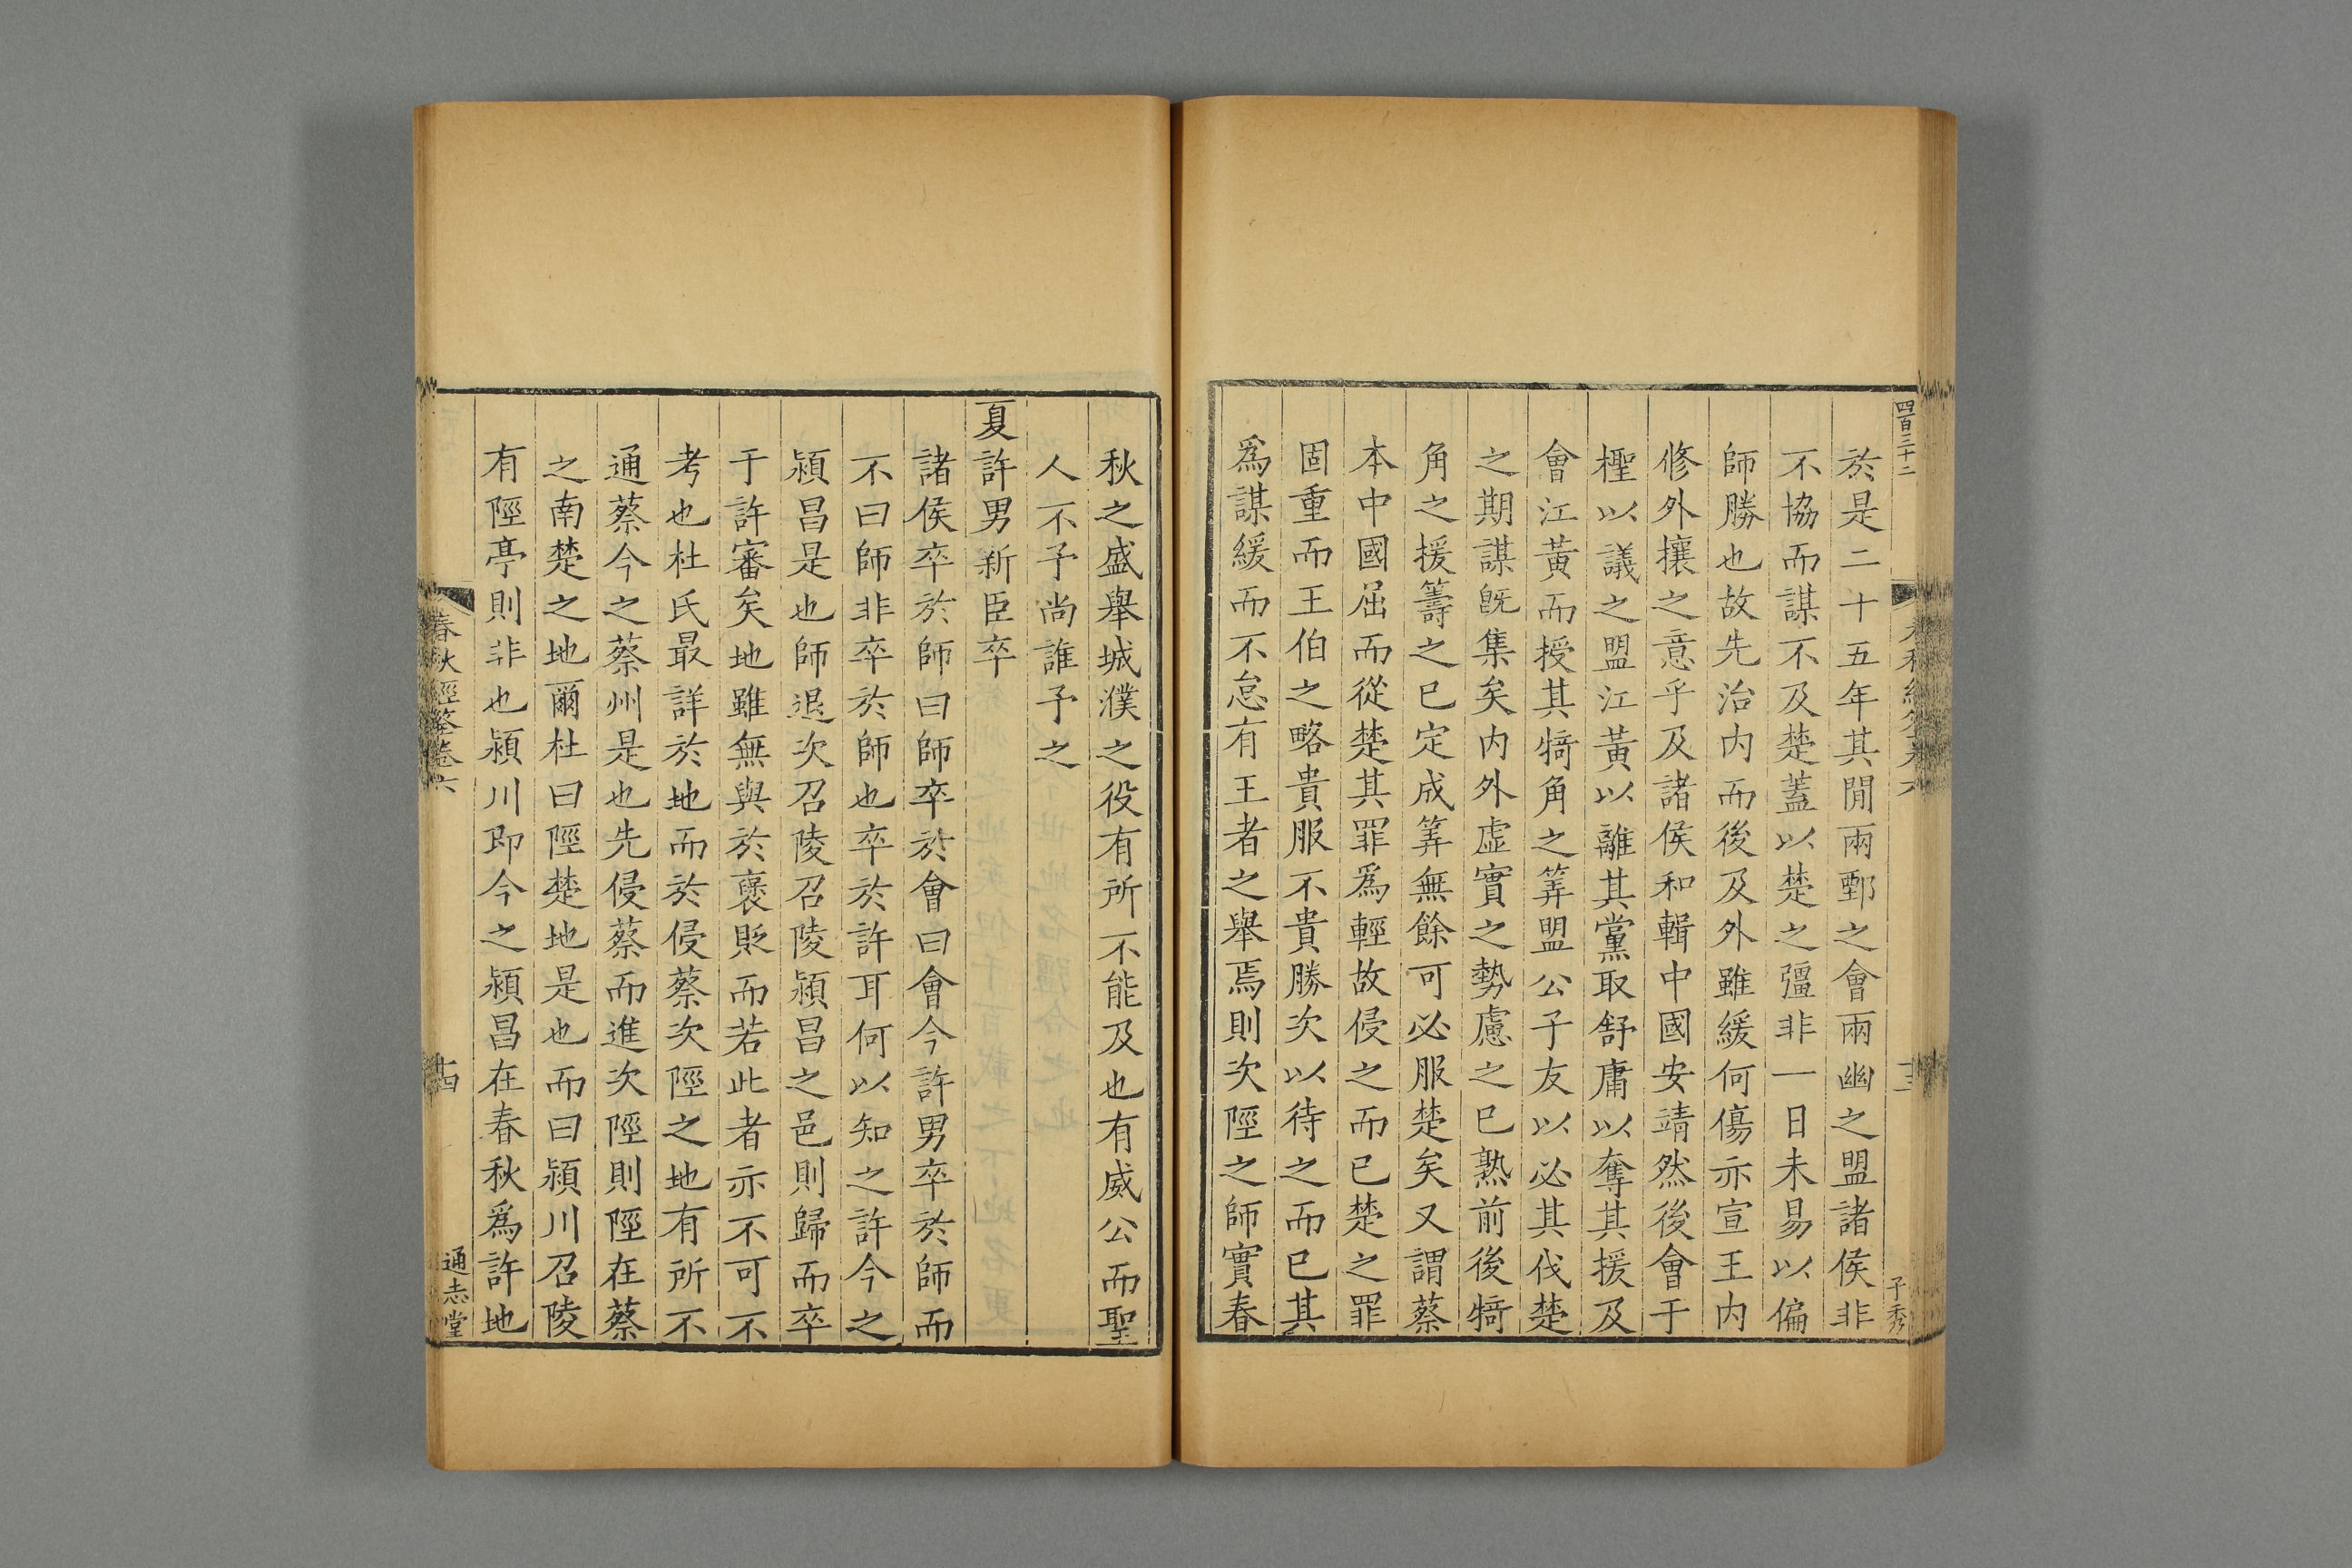 四百三十二
於是二十五年其閒兩鄄之會兩幽之盟諸侯非
不協而謀不及楚蓋以楚之彊非一日未易以偏
師勝也故先治内而後及外雖緩何傷亦宣王内
修外攘之意乎及諸侯和輯中國安靖然後會于
檉以議之盟江黃以離其黨取舒庸以奪其援及
會江黃而授其犄角之筭盟公子友以必其伐楚
之期謀旣集矣内外虛實之勢慮之已熟前後犄
角之援籌之已定成筭無餘可必服楚矣又謂蔡
本中國屈而從楚其罪爲輕故侵之而已楚之罪
固重而王伯之略貴服不貴勝次以待之而已其
爲謀緩而不怠有王者之舉焉則次陘之師實春
十三
子秀
秋之盛舉城濮之役有所不能及也有威公而聖
人不予尚誰予之
夏許男新臣卒
諸侯卒於師曰師卒於會曰會今許男卒於師而
不曰師非卒於師也卒於許耳何以知之許今之
潁昌是也師退次召陵召陵潁昌之邑則歸而卒
于許審矣地雖無與於褒貶而若此者亦不可不
考也杜氏最詳於地而於侵蔡次陘之地有所不
通蔡今之蔡州是也先侵蔡而進次陘則陘在蔡
之南楚之地爾杜曰陘楚地是也而曰潁川召陵
有陘亭則非也潁川即今之潁昌在春秋爲許地
春秋經筌卷六
十四
通志堂